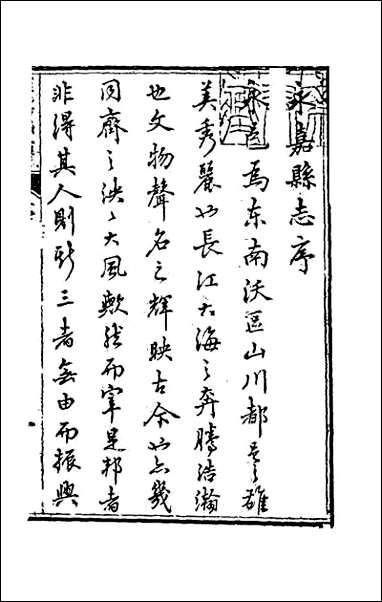 永嘉縣志序
永嘉爲东南沃區山川都邑之雄
美秀麗以長江大海之奔騰浩瀚
也文物聲名之輝映古今此亦幾
同齊之泱々大風歟然而宰是邦者
非得其人則斯三者無由而振興